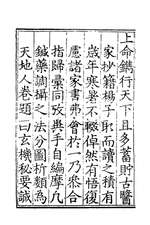 上命鐫行天下且多蓄貯古醫
家抄籍楊子取而讀之積有
歲年寒暑不輟倬然有悟復
慮諸家書弗會於一乃叅合
指歸彙同攷異手自編摩凡
鍼藥調攝之法分圖析類為
天地人卷題曰玄機秘要誠